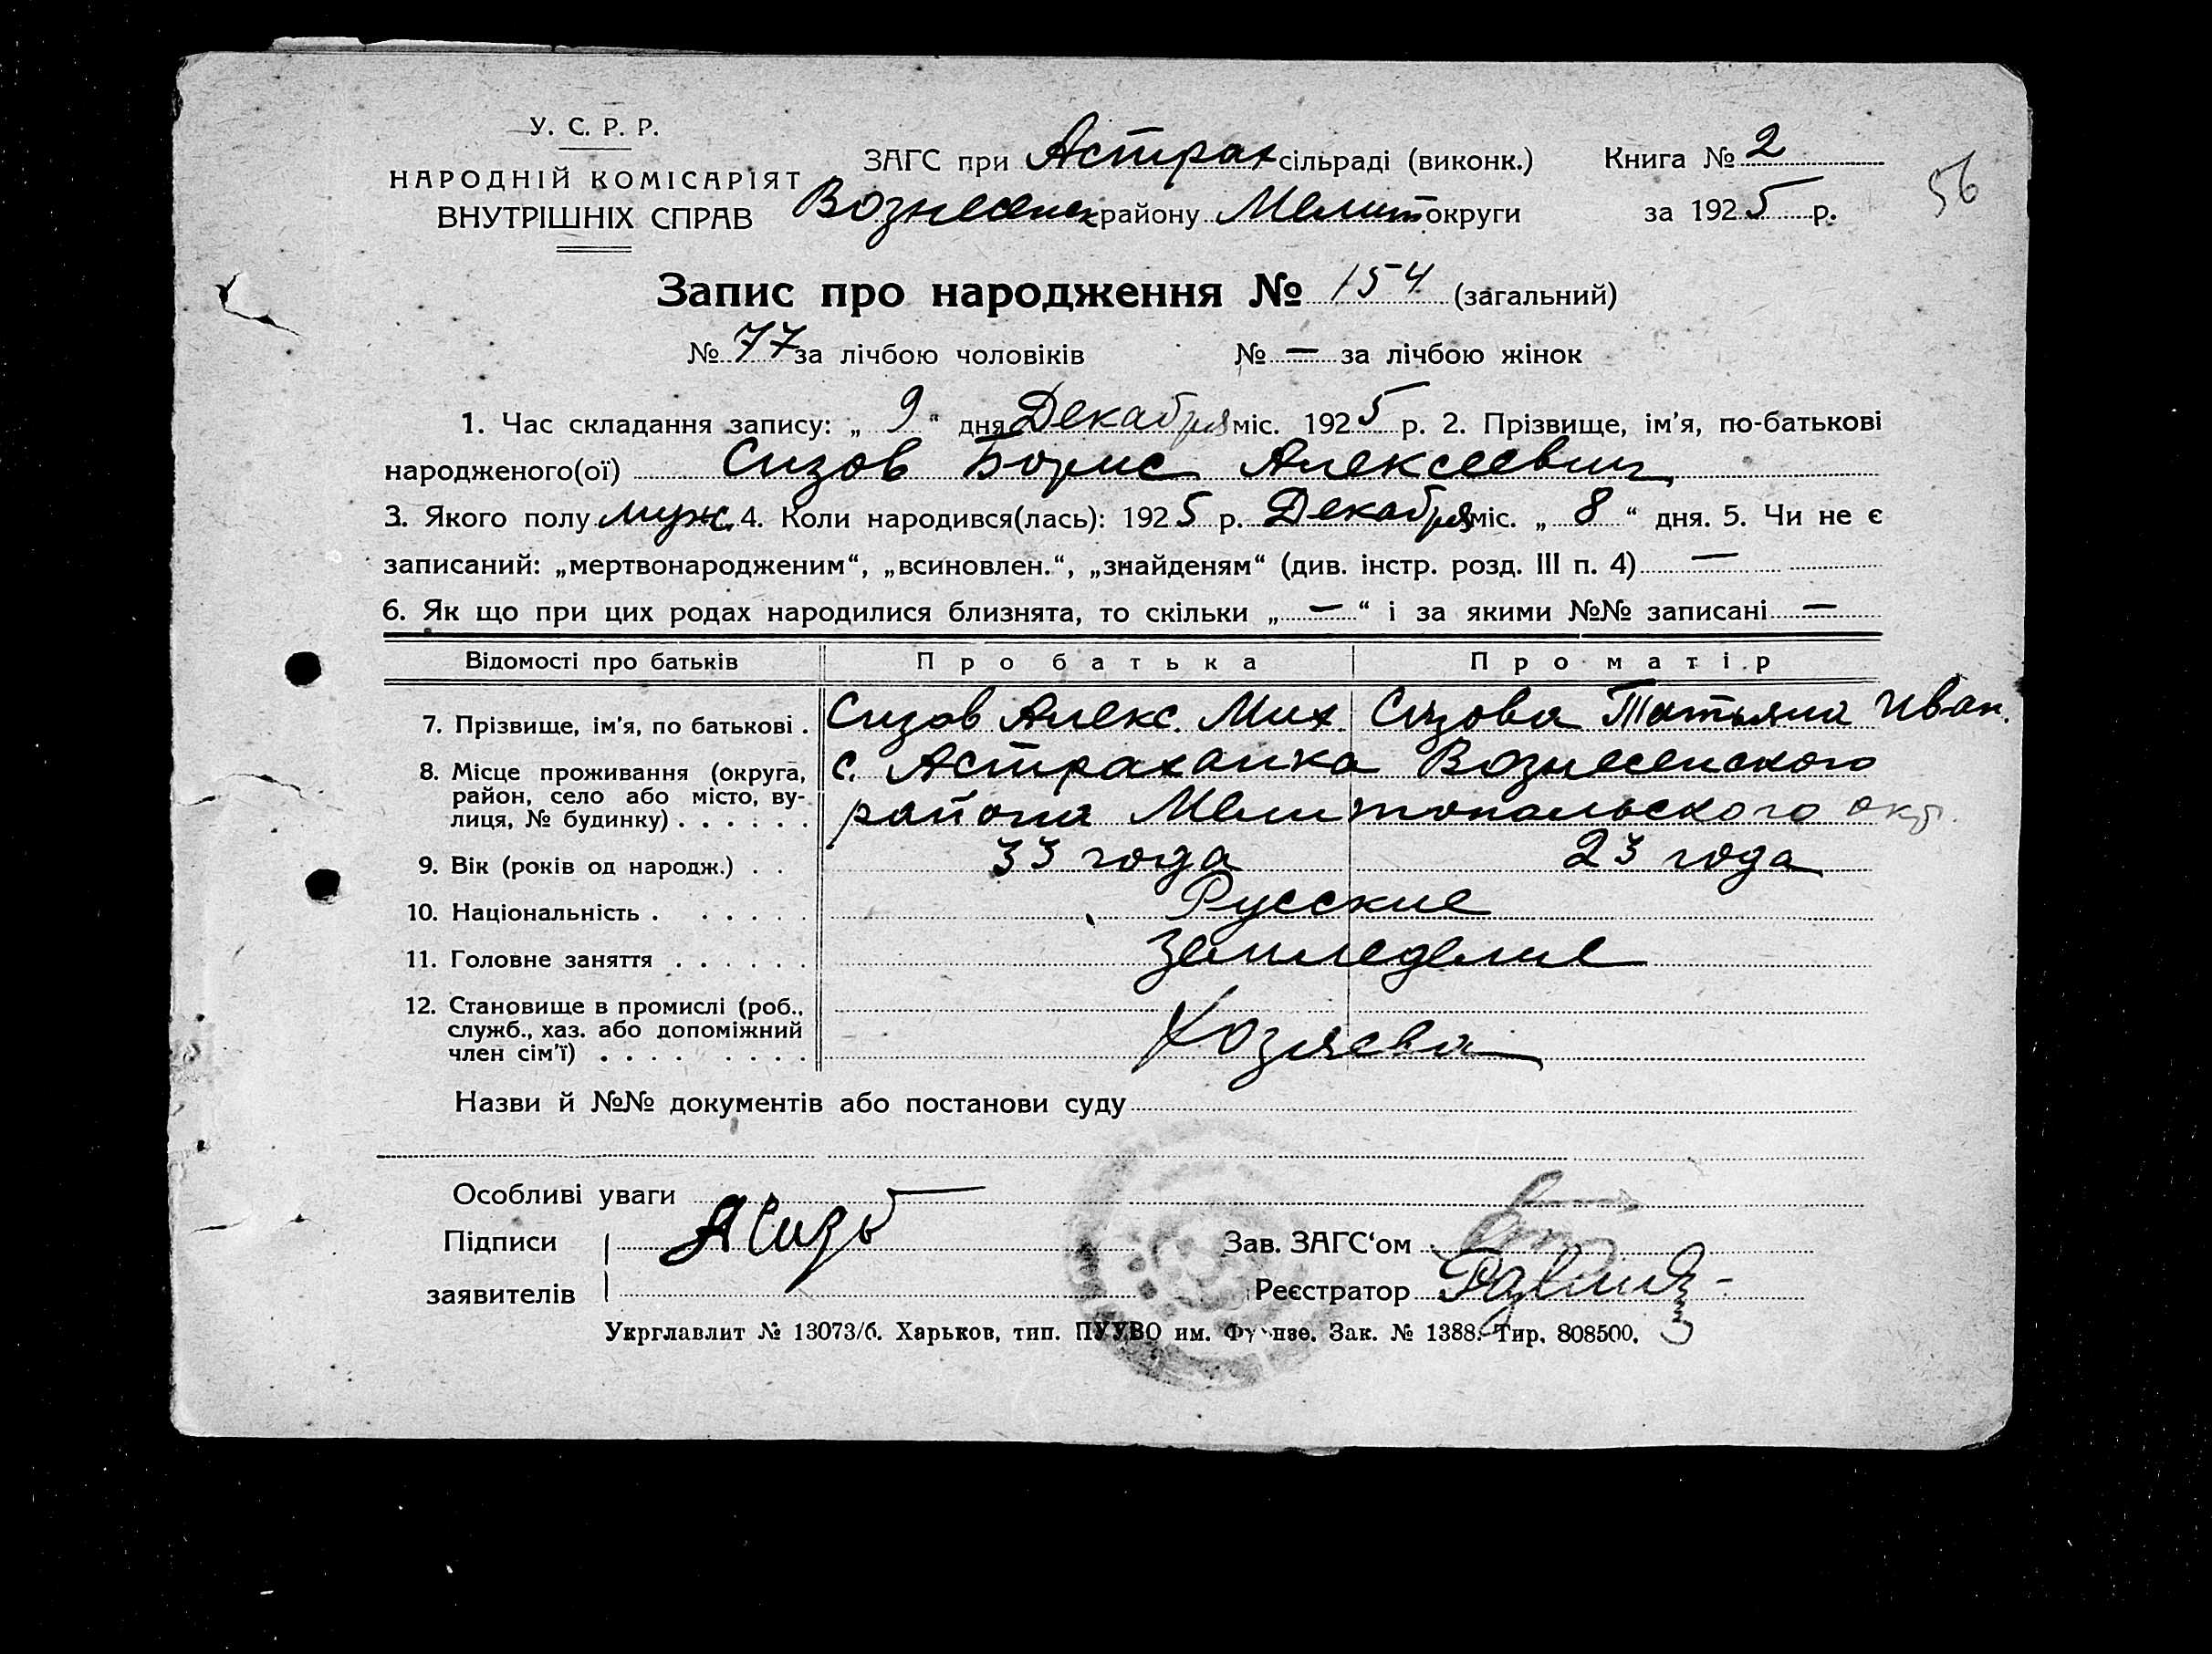 У. С. Р. Р.
НАРОДНІЙ КОМІСАРІЯТ
ВНУТРІШНІХ СПРАВ
ЗАГС при Астрах сільраді (виконк.) Книга № 2
Вознесенск району Мелит округи за 1925 р.
56
Запис про народження № 154 (загальний)
№ 77 за лічбою чоловіків № — за лічбою жінок
1. Час складання запису: „ 9 “ дня Декабря міс. 1925 р. 2. Прізвище, ім'я, по-батькові
народженого(ої) Сизов Борис Алексеевич
3. Якого полу муж. 4. Коли народився(лась): 1925 р. Декабря міс. „ 8 “ дня. 5. Чи не є
записаний: „мертвонародженим“, „всиновлен.“, „знайденям“ (див. інстр. розд. III п. 4) —
6. Як що при цих родах народилися близнята, то скільки „ — “ і за якими №№ записані —
Відомості про батьків Про батька Про матір
7. Прізвище, ім'я, по батькові . Сизов Алекс. Мих. Сизова Татьяна Иван.
8. Місце проживання (округа, с. Астраханка Вознесенского
район, село або місто, ву-
лиця, № будинку) . . . . . . района Мелитопольского окр.
9. Вік (років од народж.) . . 33 года 23 года
10. Національність . . . . . . Русские
11. Головне заняття . . . . . . Земледелие
12. Становище в промислі (роб.,
служб., хаз. або допоміжний
член сім'ї) . . . . . . . . Хозяева
Назви й №№ документів або постанови суду
Особливі уваги
Підписи А Сизов
заявителів
Зав. ЗАГС‘ом
Реєстратор
Укрглавлит № 13073/б. Харьков, тип. ПУУВО им. Фрунзе. Зак. № 1388. Тир. 808500.